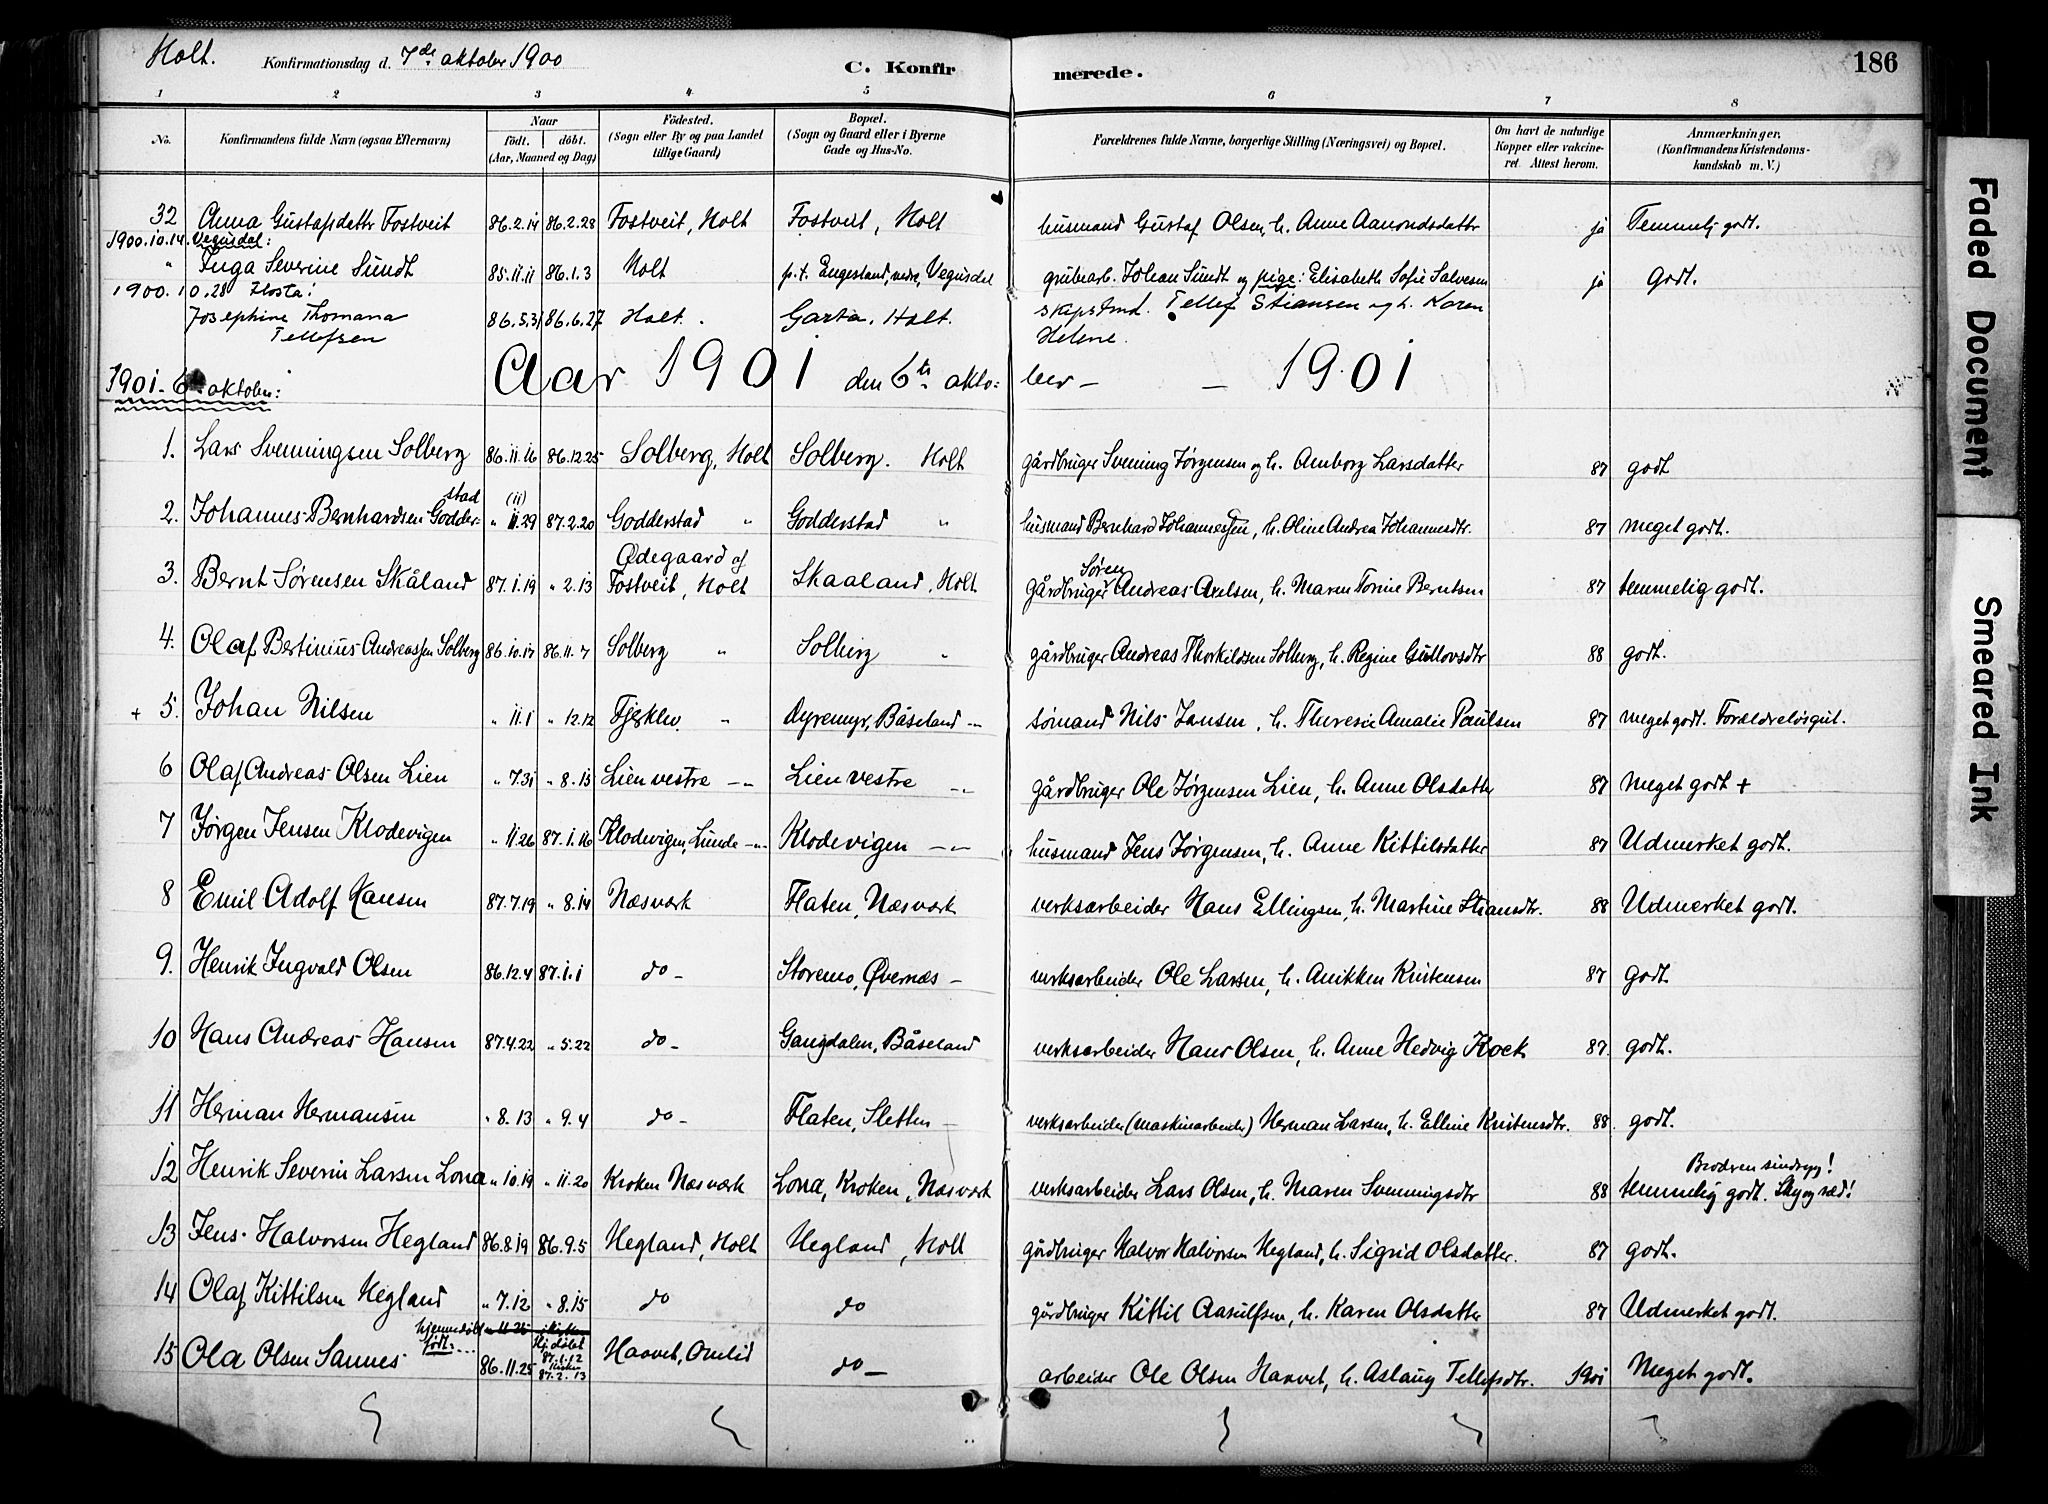 Holt. Konfirmationsdag d. 7de oktober 1900 C. Konfirmerede. 186
1 2 3 4 5 6 7 8
No. Konfirmandens fulde Navn (ogsaa Efternavn) Naar født. døbt. (Aar, Maaned og Dag) Fødested. (Sogn eller By og paa Landet tillige Gaard) Bopæl. (Sogn og Gaard eller i Byerne Gade og Hus-No. Forældrenes fulde Navne, borgerlige Stilling (Næringsvei) og Bopæl. Om havt de naturlige Kopper eller vakcineret. Attest herom. Anmærkninger. (Konfirmandens Kristendomskundskab m. V.)
32 Anna Gustafsdattr Fostveit 86.2.14 86.2.28 Fostveit, Holt Fostveit, Holt husmand Gustaf Olsen, h. Anne Aamondsdattr ja Temmelj godt.
1900.10.14. Vegusdal:
" Inga Severine Sundt 85.11.11 86.1.3 Holt p.t. Engesland, nedre, Vegusdal grubearb. Johan Sundt og pige: Elisabeth Sofie Salvesen ja Godt.
1900.10.28 Flosta:
Josephine Thomana Tellefsen 86.5.31 86.6.27 Holt. Garta, Holt. skipstmd. Tellef Stiansen og h. Karen Helene.
1901. 6te oktober: Aar 1901 den 6te oktober – – 1901
1. Lars Svenningsen Solberg 86.11.16 86.12.25 Solberg, Holt Solberg. Holt gårdbruger Svenning Jørgensen og h. Amborg Larsdatter 87 godt
2. Johannes Bernhardsen Godderstad " (11) 11.29 87.2.20 Godderstad " Godderstad " husmand Bernhard Johannessen, h. Oline Andrea Johannesdtr. 87 meget godt.
3. Bernt Sørensen Skåland 87.1.19 " 2.13 Ødegaard af Fostveit, Holt Skaaland, Holt gårdbruger Søren Andreas Axelsen, h. Maren Tomine Berntsen 87 temmelig godt.
4. Olaf Bertinius Andreassen Solberg 86.10.17 86.11.7 Solberg " Solberg " gårdbruger Andreas Thorkildsen Solberg, h. Regine Gullovsdtr 88 godt.
+ 5. Johan Nilsen " 11.1 " 12.12 " Dyremyr, Båseland – " sømand Nils Jansen, h. Theresie Amalie Paulsen 87 meget godt.
6 Olaf Andreas Olsen Lien " 7.31 " 8.15 Lien vestre – " – Lien vestre – " – gårdbruger Ole Jørgensen Lien, h. Anne Olsdatter 87 meget godt +
7 Jørgen Jensen Klodevigen " 11.26 87.1.16 Klodevigen, Lunde – " – Klodevigen – " – husmand Jens Jørgensen, h. Anne Kittilsdatter 87 Udmerket godt.
8 Emil Adolf Hansen 87.7.19 " 8.14 Næsværk Flaten, Næsværk verksarbeider Hans Ellingsen, h. Martine Stiansdtr. 88 Udmerket godt.
9. Henrik Ingvald Olsen 86.12.4 87.1.1 do – Storemo, Øvernæs – verksarbeider Ole Larsen, h. Anikken Kristensen 87 godt
10 Hans Andreas Hansen 87.4.22 " 5.22 do – Gangdalen, Båseland verksarbeider Hans Olsen, h. Anne Hedvig Kock 87. godt.
11 Herman Hermansen " 8.13 " 9.4 do – Flaten, Sletten – verksarbeider (maskinarbeider) Herman Larsen, h. Elline Kristensdtr. 88. godt.
12 Henrik Severin Larsen Lona " 10.19 " 11.20 Kroken Næsværk Lona, Kroken, Næsværk verksarbeider Lars Olsen, h. Maren Svenningsdtr 88 temmelig godt. Broderen sindsyg!
13 Jens Halvorsen Hegland 86.8.19 86.9.5 Hegland, Holt Hegland, Holt gårdbruger Halvor Halvorsen Hegland, h. Sigrid Olsdatter. 87 godt.
14 Olaf Kittilsen Hegland " 7.12 " 8.15 do do gårdbruger Kittil Aasulfsen, h. Karen Olsdatter 87 Udmerket godt.
15 Ola Olsen Sannes født: 86.11.25 Hj. døbt 87.1.2 kirken 87.2.13 Haavet, Omlid do – arbeider Ole Olsen Haavet, h. Aslaug Tellefsdtr. 1901 Meget godt.
Faded Document
Smeared Ink